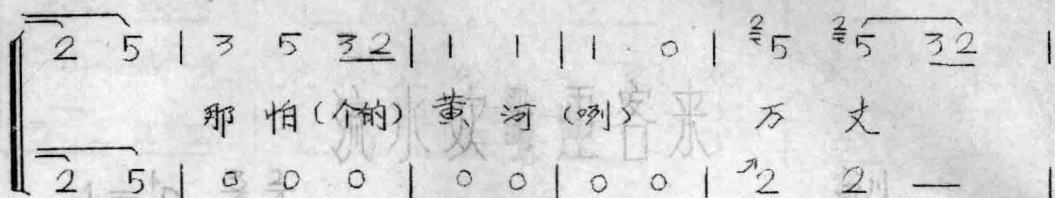 2 5 | 3 5 3 2 | 1 1 | 1 0 | 2 5 2 5 3 2 |
那 怕 (个的) 黄 河 (咧) 万 丈
2 5 | 0 0 0 | 0 0 | 0 0 | 2 2 — |